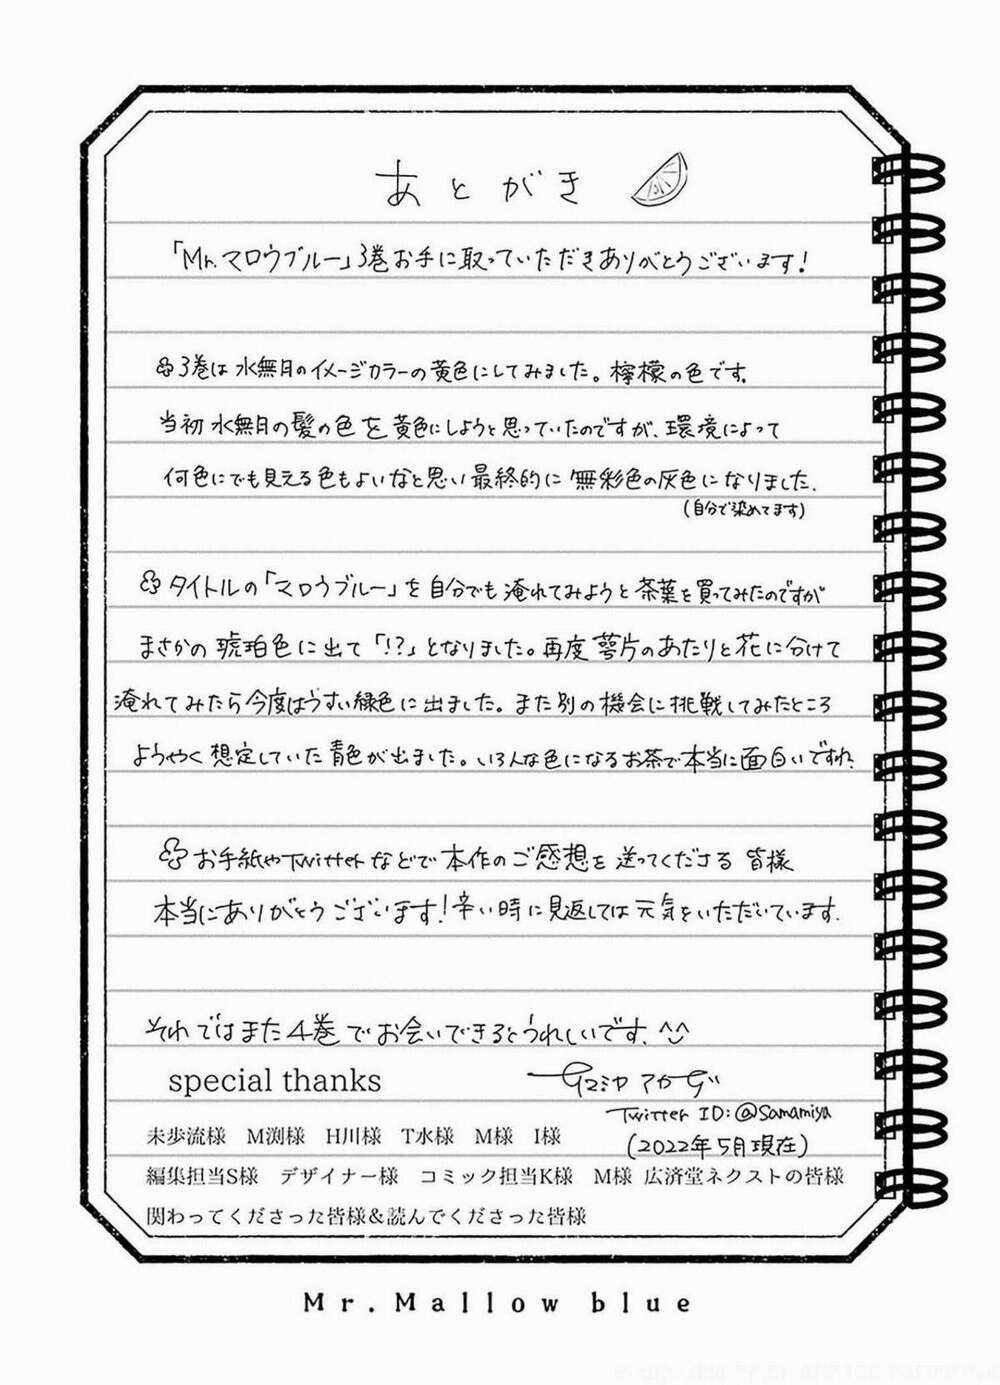 あとがき
「Mr.マロウブルー」3巻お手に取っていただきありがとうございます!
3巻は水無月のイメージカラーの黄色にしてみました。檸檬の色です。
当初水無月の髪の色を黄色にしようと思っていたのですが、環境によって
何色にでも見える色もよいなと思い最終的に無彩色の灰色になりました。
(自分で染めてます)
タイトルの「マロウブルー」を自分でも淹れてみようと茶葉を買ってみたのですが
まさかの琥珀色に出て「!?」となりました。再度萼片のあたりと花に分けて
淹れてみたら今度はうすい緑色に出ました。また別の機会に挑戦してみたところ
ようやく想定していた青色が出ました。いろんな色になるお茶で本当に面白いですね。
お手紙やTwitterなどで本作のご感想を送ってくださる皆様
本当にありがとうございます!辛い時に見返しては元気をいただいています。
それではまた4巻でお会いできるとうれしいです。^^
special thanks
アカデ
Twitter ID:@Samamiya
(2022年5月現在)
未歩流様 M渕様 H川様 T水様 M様 I様
編集担当S様 デザイナー様 コミック担当K様 M様 広済堂ネクストの皆様
関わってくださった皆様&読んでくださった皆様
Mr.Mallow blue